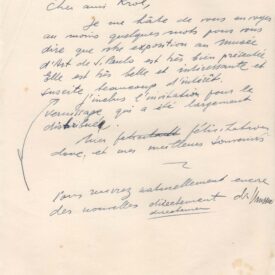 Cher ami Krol,
Je me hâte de vous envoyer
au moins quelques mots pour vous
dire que votre exposition au musée
d'Art de S. Paulo est très bien présentée
Elle est très belle et intéressante et
suscite beaucoup d'intérêt.
J'inclus l'invitation pour le
vernissage qui a été largement
distribué
Mes félicitations
donc, et mes meilleurs souvenirs
Vous recevrez naturellement encore
des nouvelles directement
directement